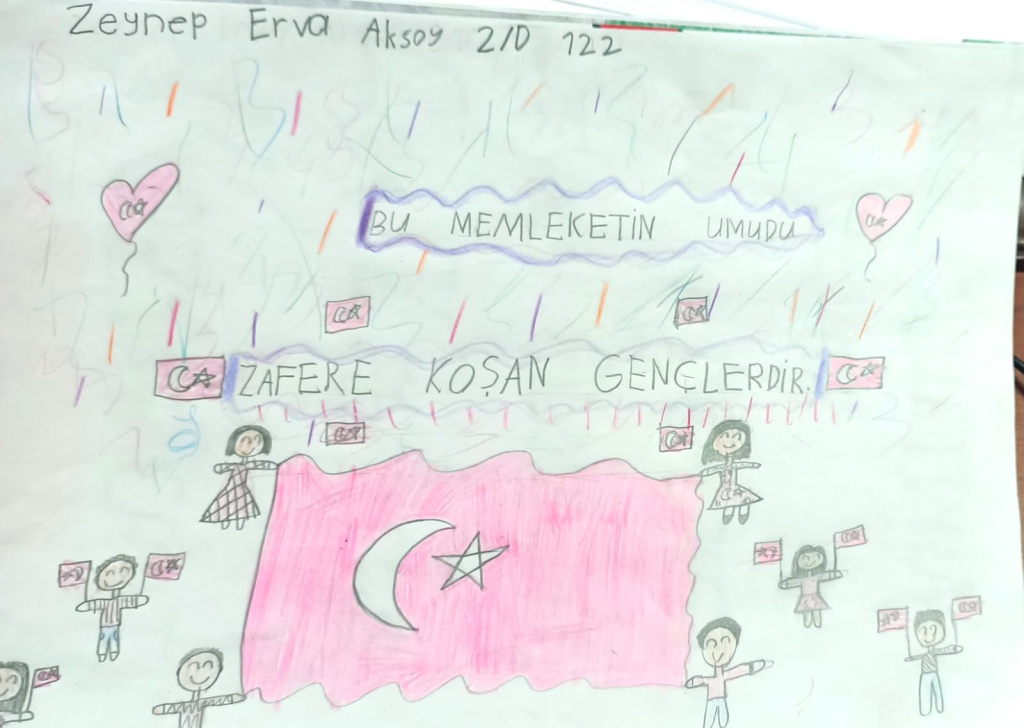 Zeynep Erva Aksoy 2/D 122
BU MEMLEKETİN UMUDU
ZAFERE KOŞAN GENÇLERDİR.